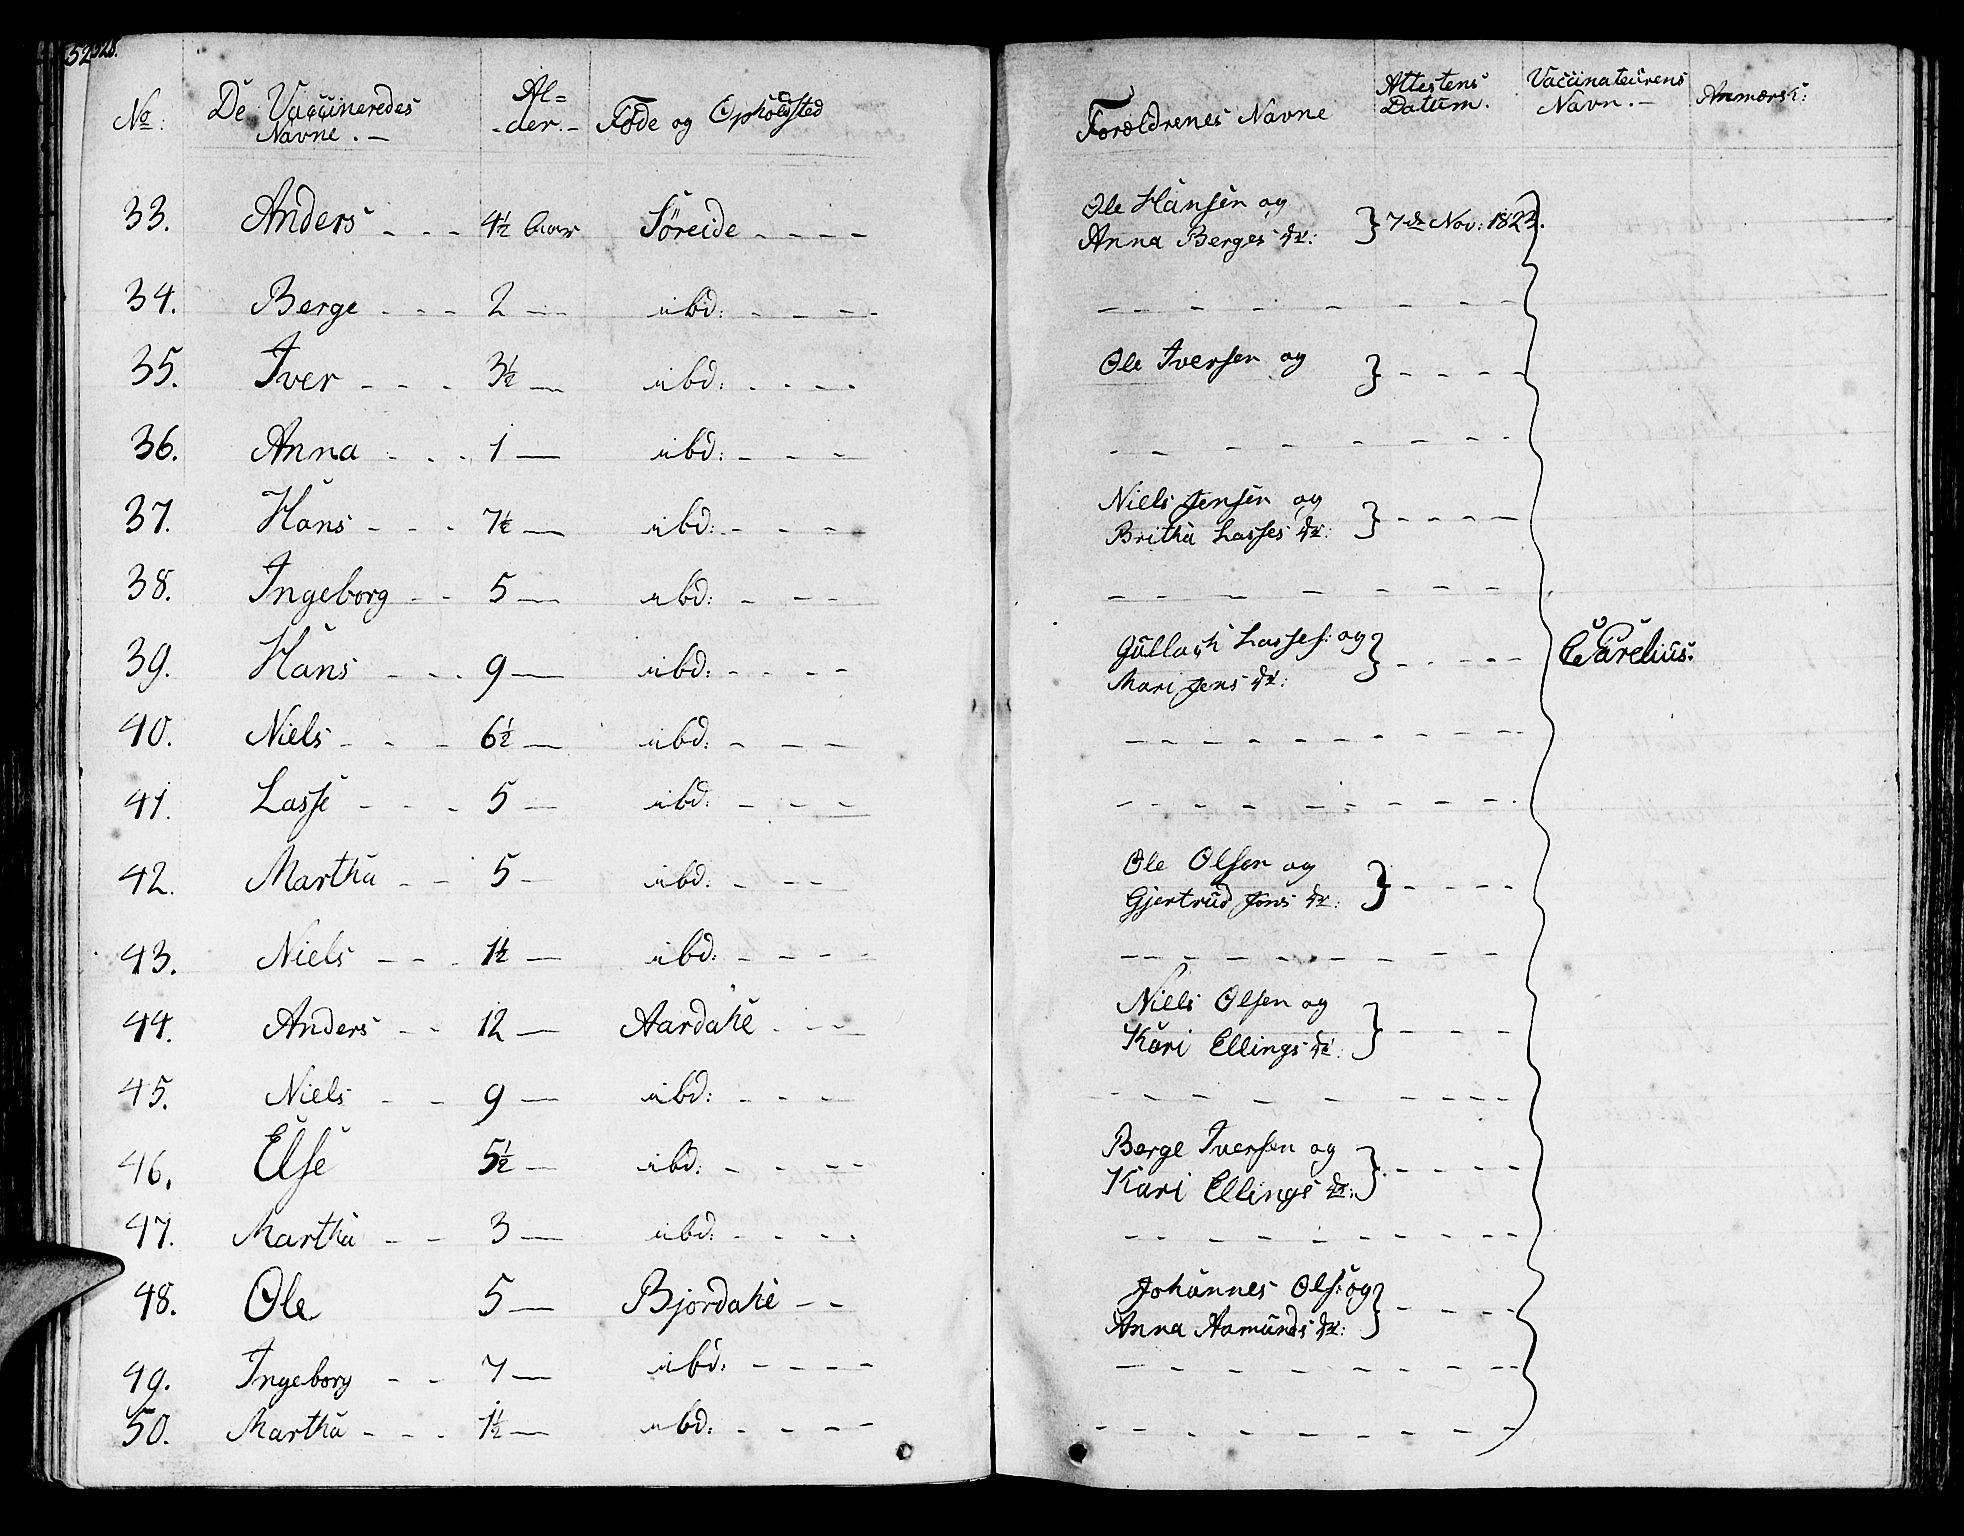 No: De Vaccineredes Navne. — Al= der. — Føde og Opholdsted Forældrenes Navne Attestens Datum. Vaccinateurens Navn. — Anmærk:
33. Anders - - - 4½ Aar Söreide - - - - Ole Hansen og
Anna Berges dr: } 7de Nov: 1823.
34. Berge - - - 2 — ibd: - - - -
35. Iver - - - 3½ — ibd: - - - - Ole Iversen og } - - - -
36. Anna - - - 1 — ibd: - - - -
37. Hans - - - 7½ — ibd: - - - - Niels Jensen og
Britha Lasses dr: } - - - -
38. Ingeborg - - 5 — ibd: - - -
39. Hans - - - 9 — ibd: - - - - Gullach Lasses: og
Mari Jens dr: } - - - - Carelius.
40. Niels - - - 6½ — ibd: - - -
41. Lasse - - - 5 — ibd: - - -
42. Martha - - 5 — ibd: - - - Ole Olsen og
Gjertrud Jons dr: } - - - -
43. Niels - - - 1½ — ibd: - - - -
44. Anders - - 12 — Aardahl - - - Niels Olsen og
Kari Ellings dr: } - - - -
45. Niels - - 9 — ibd: - - - -
46. Else 5½ — ibd: - - - - Berge Iversen og
Kari Ellings dr: } - - - -
47. Martha - - 3 — ibd: - - - -
48. Ole 5 — Bjordahl - - Johannes Ols: og
Anna Aamunds dr: } - - - -
49. Ingeborg - - 7 — ibd: - - - -
50. Martha - - - 1½ — ibd: - - - -